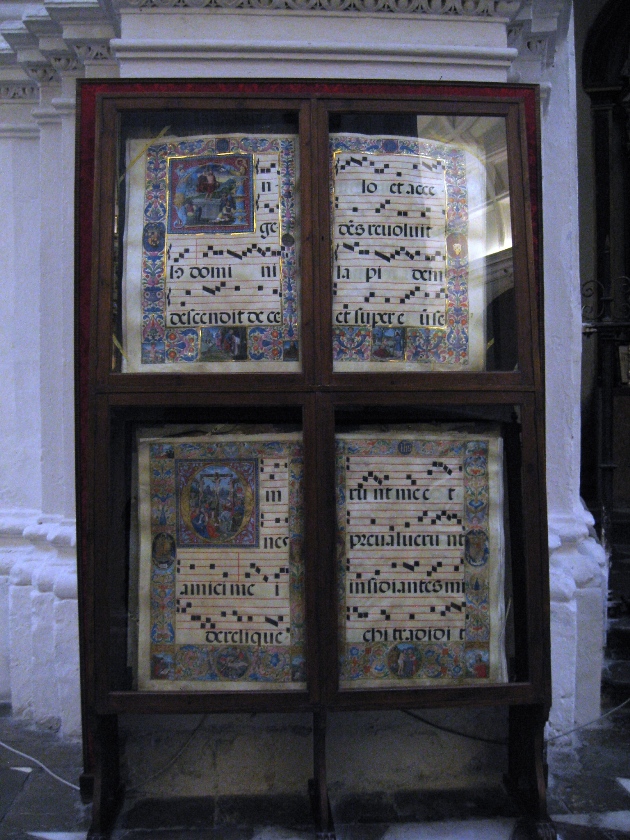 n
ge
lꝰ domi ni
descendit de ce
lo et acce
dẽs revoluit
la pi dem
et super e
m
nes
amici me i
derelique
ru nt me
prevalueru nt
insidiantes mi
chi tradidi t